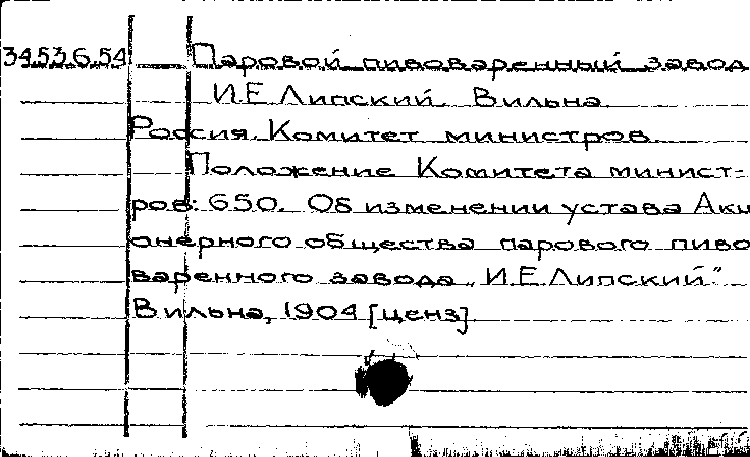 34.53.6.54 Паровой пивоваренный завод
И.Е Липский. Вильна.
Россия. Комитет министров.
Положение Комитета минист-
ров: 650. Об изменении устава Акци
онерного общества парового пиво
варенного завода „И.Е Липский”
Вильна, 1904 [ценз].